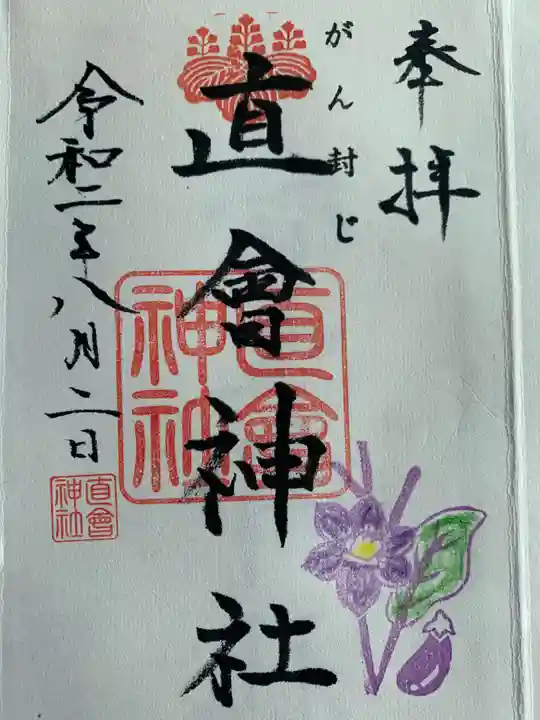 奉拝
がん封じ
直會神社
令和二年八月二日
直會
神社
直會
神社